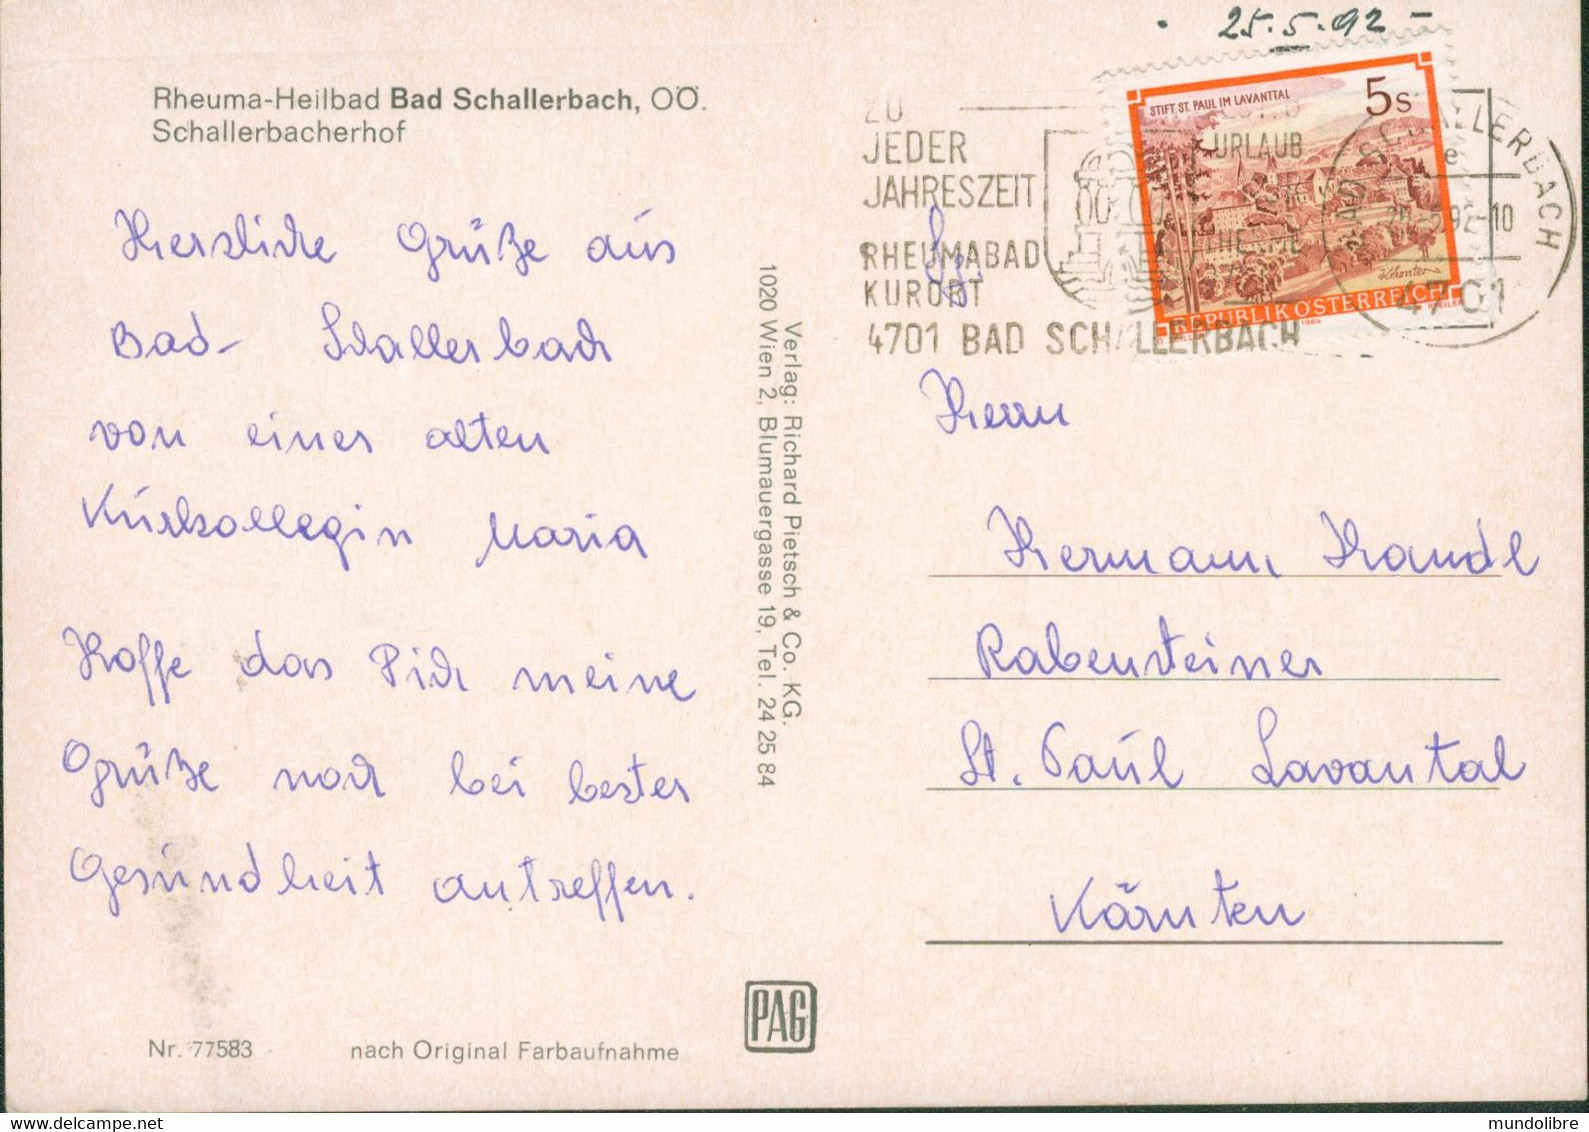 25.5.92
Rheuma-Heilbad Bad Schallerbach, OÖ.
Schallerbacherhof
Herzliche Grüße aus
Bad- Schallerbach
von einer alten
Kurkollegin Maria
Hoffe das Dich meine
Grüße noch bei bester
Gesundheit antreffen.
Nr. 77583
nach Original Farbaufnahme
Verlag: Richard Pietsch & Co. KG.
1020 Wien 2, Blumauergasse 19, Tel. 24 25 84
PAG
ZU
JEDER
JAHRESZEIT
RHEUMABAD
KURORT
4701 BAD SCHALLERBACH
URLAUB
STIFT ST. PAUL IM LAVANTTAL
5s
REPUBLIK ÖSTERREICH
1984
BAD SCHALLERBACH
e
5.92-10
4701
Herrn
Hermann Handl
Rabensteiner
St. Paul Lavantal
Kärnten
mundolibre